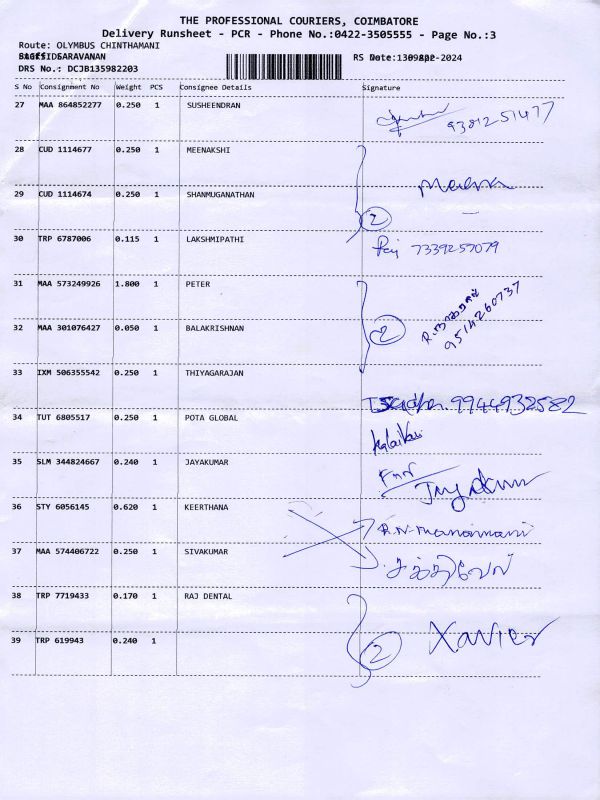 THE PROFESSIONAL COURIERS, COIMBATORE
Delivery Runsheet - PCR - Phone No.:0422-3505555 - Page No.:3
Route: OLYMBUS CHINTHAMANI
SARAVANAN RS Date: -2024
DRS No.: DCJB135982203
S No Consignment No Weight PCS Consignee Details Signature
27 MAA 864852277 0.250 1 SUSHEENDRAN 9381251477
28 CUD 1114677 0.250 1 MEENAKSHI
29 CUD 1114674 0.250 1 SHANMUGANATHAN Meena
2
30 TRP 6787006 0.115 1 LAKSHMIPATHI 7339257079
31 MAA 573249926 1.800 1 PETER
9514260737
32 MAA 301076427 0.050 1 BALAKRISHNAN 2
33 IXM 506355542 0.250 1 THIYAGARAJAN
9944932582
34 TUT 6805517 0.250 1 POTA GLOBAL
35 SLM 344824667 0.240 1 JAYAKUMAR
36 STY 6056145 0.620 1 KEERTHANA
R.N-Manonmani
37 MAA 574406722 0.250 1 SIVAKUMAR
சக்திவேல்
38 TRP 7719433 0.170 1 RAJ DENTAL
39 TRP 619943 0.240 1 2 Xavier